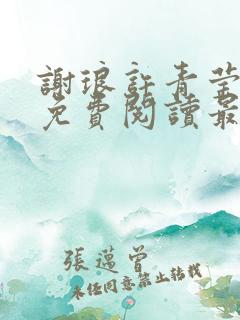 謝琅許青莹
免費閱讀最
張邁曾
未经同意禁止转载